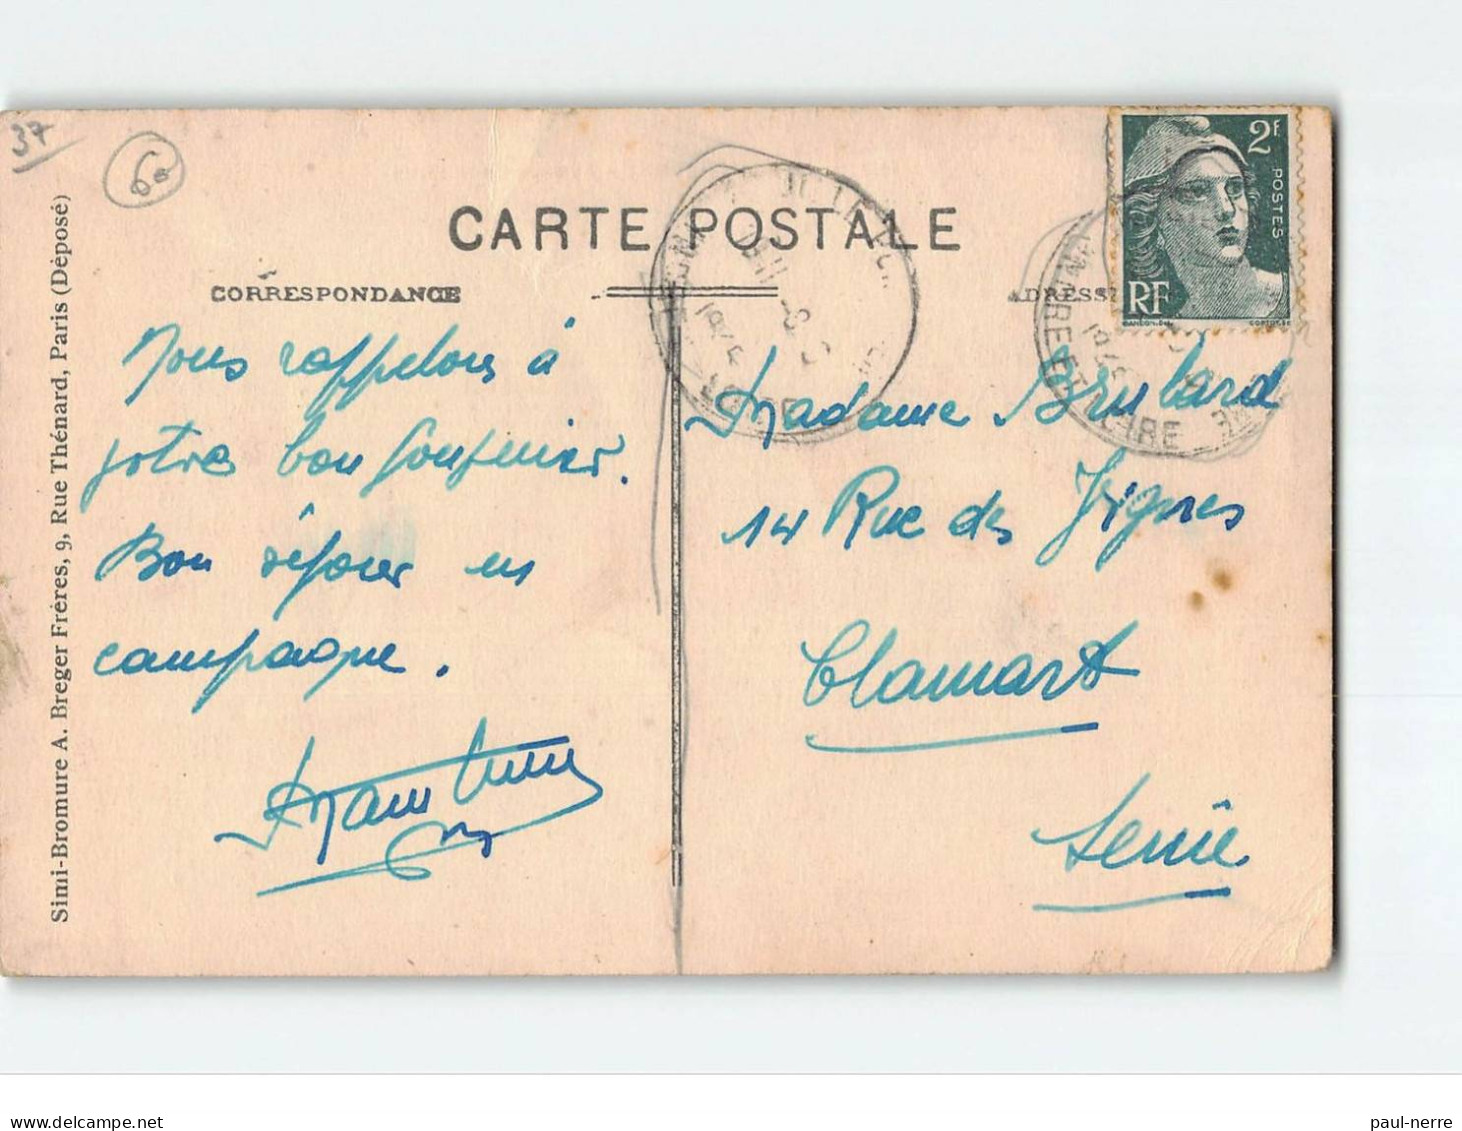 37
60
CARTE POSTALE
CORRESPONDANCE
ADRESSE
2F
POSTES
RF
INDRE ET LOIRE
1945
Simi-Bromure A. Breger Frères, 9, Rue Thénard, Paris (Déposé)
Nous rappelons à
votre bon souvenir.
Bon séjour en
campagne.
Madame Brulard
14 Rue des Vignes
Clamart
Seine
paul-nerre